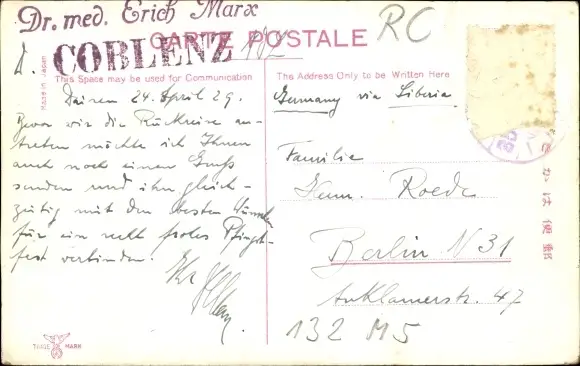 Dr. med. Erich Marx
COBLENZ
CARTE POSTALE
RC
Made in Japan
This Space may be used for Communication
Dairen 24. April 29.
Bevor wir die Rückreise an-
treten möchte ich Ihnen
auch noch einen Gruß
senden und ihn gleich-
zeitig mit den besten Wünschen
für ein recht frohes Pfingst-
fest verbinden.
Ihr
The Address Only to be Written Here
Germany via Siberia
Familie
Roede
Berlin N 31
Anklamerstr. 47
132 M5
きかは便郵
TRADE MARK